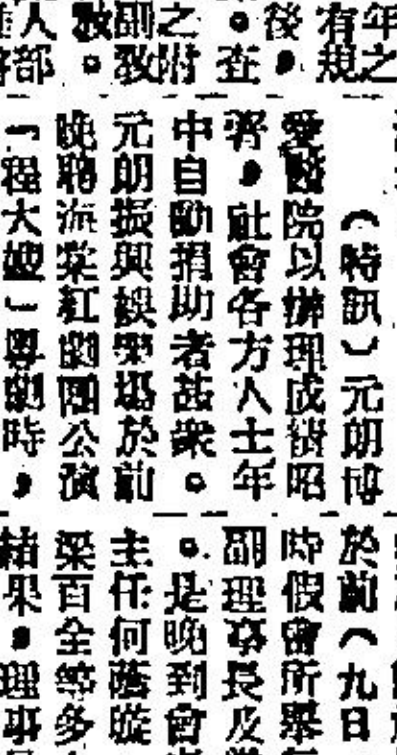 年之
有規
後，
。查
之附
副教
數。
人部
（特訊）元朗博
愛醫院以辦理成績昭
著，社會各方人士年
中自動捐助者甚衆。
元朗振興娛樂場於前
晚聘海棠紅劇團公演
「程大嫂」粵劇時，
於前（九日
時假會所舉
副理事長及
。是晚到會
主任何蔭璇
梁百全等多
結果，理事